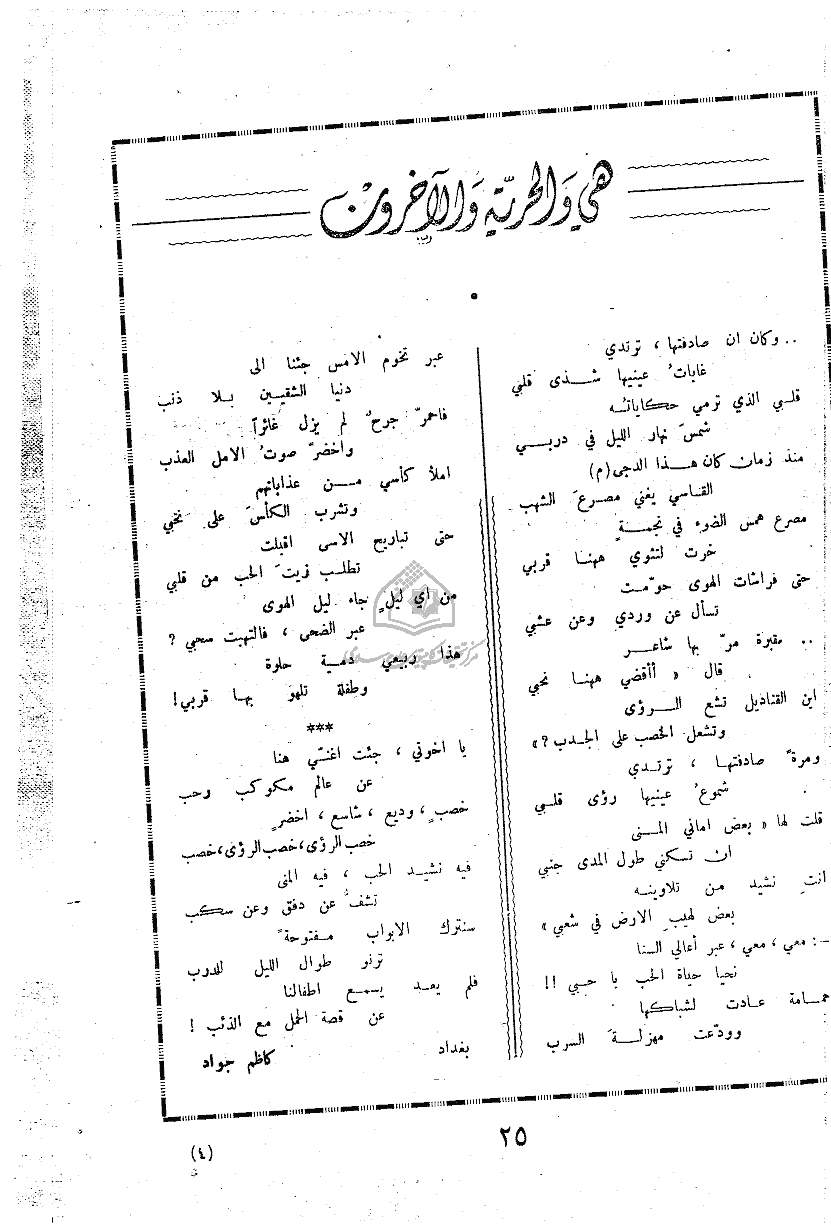 هي والحرية والآخرون
.. وكان ان صادفتها ، ترتدي
غاباتُ عينيها شذى قلبي
قلبي الذي ترمي حكاياتُه
شمسَ نهار الليل في دربي
منذ زمان كان هذا الدجى (م)
القاسي يغني مصرعَ الشهب
مصرع همس الضوء في نجمةٍ
خرت لتثوي ههنا قربي
حتى فراشات الهوى حوّمت
تسأل عن وردي وعن عشبي
.. مقبرة مرّ بها شاعر
قال « أأقضي ههنا نحبي
اين القناديل تشع الرؤى
وتشعل الخصب على الجدب ؟»
ومرةً صادفتها ، ترتدي
شموعُ عينيها رؤى قلبي
قلت لها « بعض اماني المنى
ان تسكني طول المدى جنبي
انتِ نشيد من تلاوينه
بعض لهيبِ الارض في شعبي »
ـ : معي ، معي ، عبر أعالي السنا
نحيا حياة الحب يا حبي !!
حمامة عادت لشباكها
وودّعت مهزلةَ السرب
عبر تخوم الامس جئنا الى
دنيا الشقيين بلا ذنب
فاحمرّ جرحٌ لم يزل غائراً
واخضرّ صوتُ الامل العذب
املأ كأسي من عذاباتهم
وتشرب الكأسَ على نخبي
حتى تباريح الاسى اقبلت
تطلب زيتَ الحب من قلبي
من اي ليلٍ جاء ليل الهوى
عبر الضحى ، فالتهبت سحبي ؟
هذا ربيعي دمية حلوة
وطفلة تلهو بها قربي!
***
يا اخوتي ، جئت اغنّي هنا
عن عالم مكوكب وحب
خصبٍ ، وديع ، شاسع ، اخضرٍ
خصب الرؤى ، خصب الرؤى ، خصب
فيه نشيد الحب ، فيه المنى
تشفُّ عن دفق وعن سكب
سنترك الابواب مفتوحةً
ترنو طوال الليل للدرب
فلم يعد يسمع اطفالنا
عن قصة الحمل مع الذئب !
بغداد كاظم جواد
٢٥
(٤)